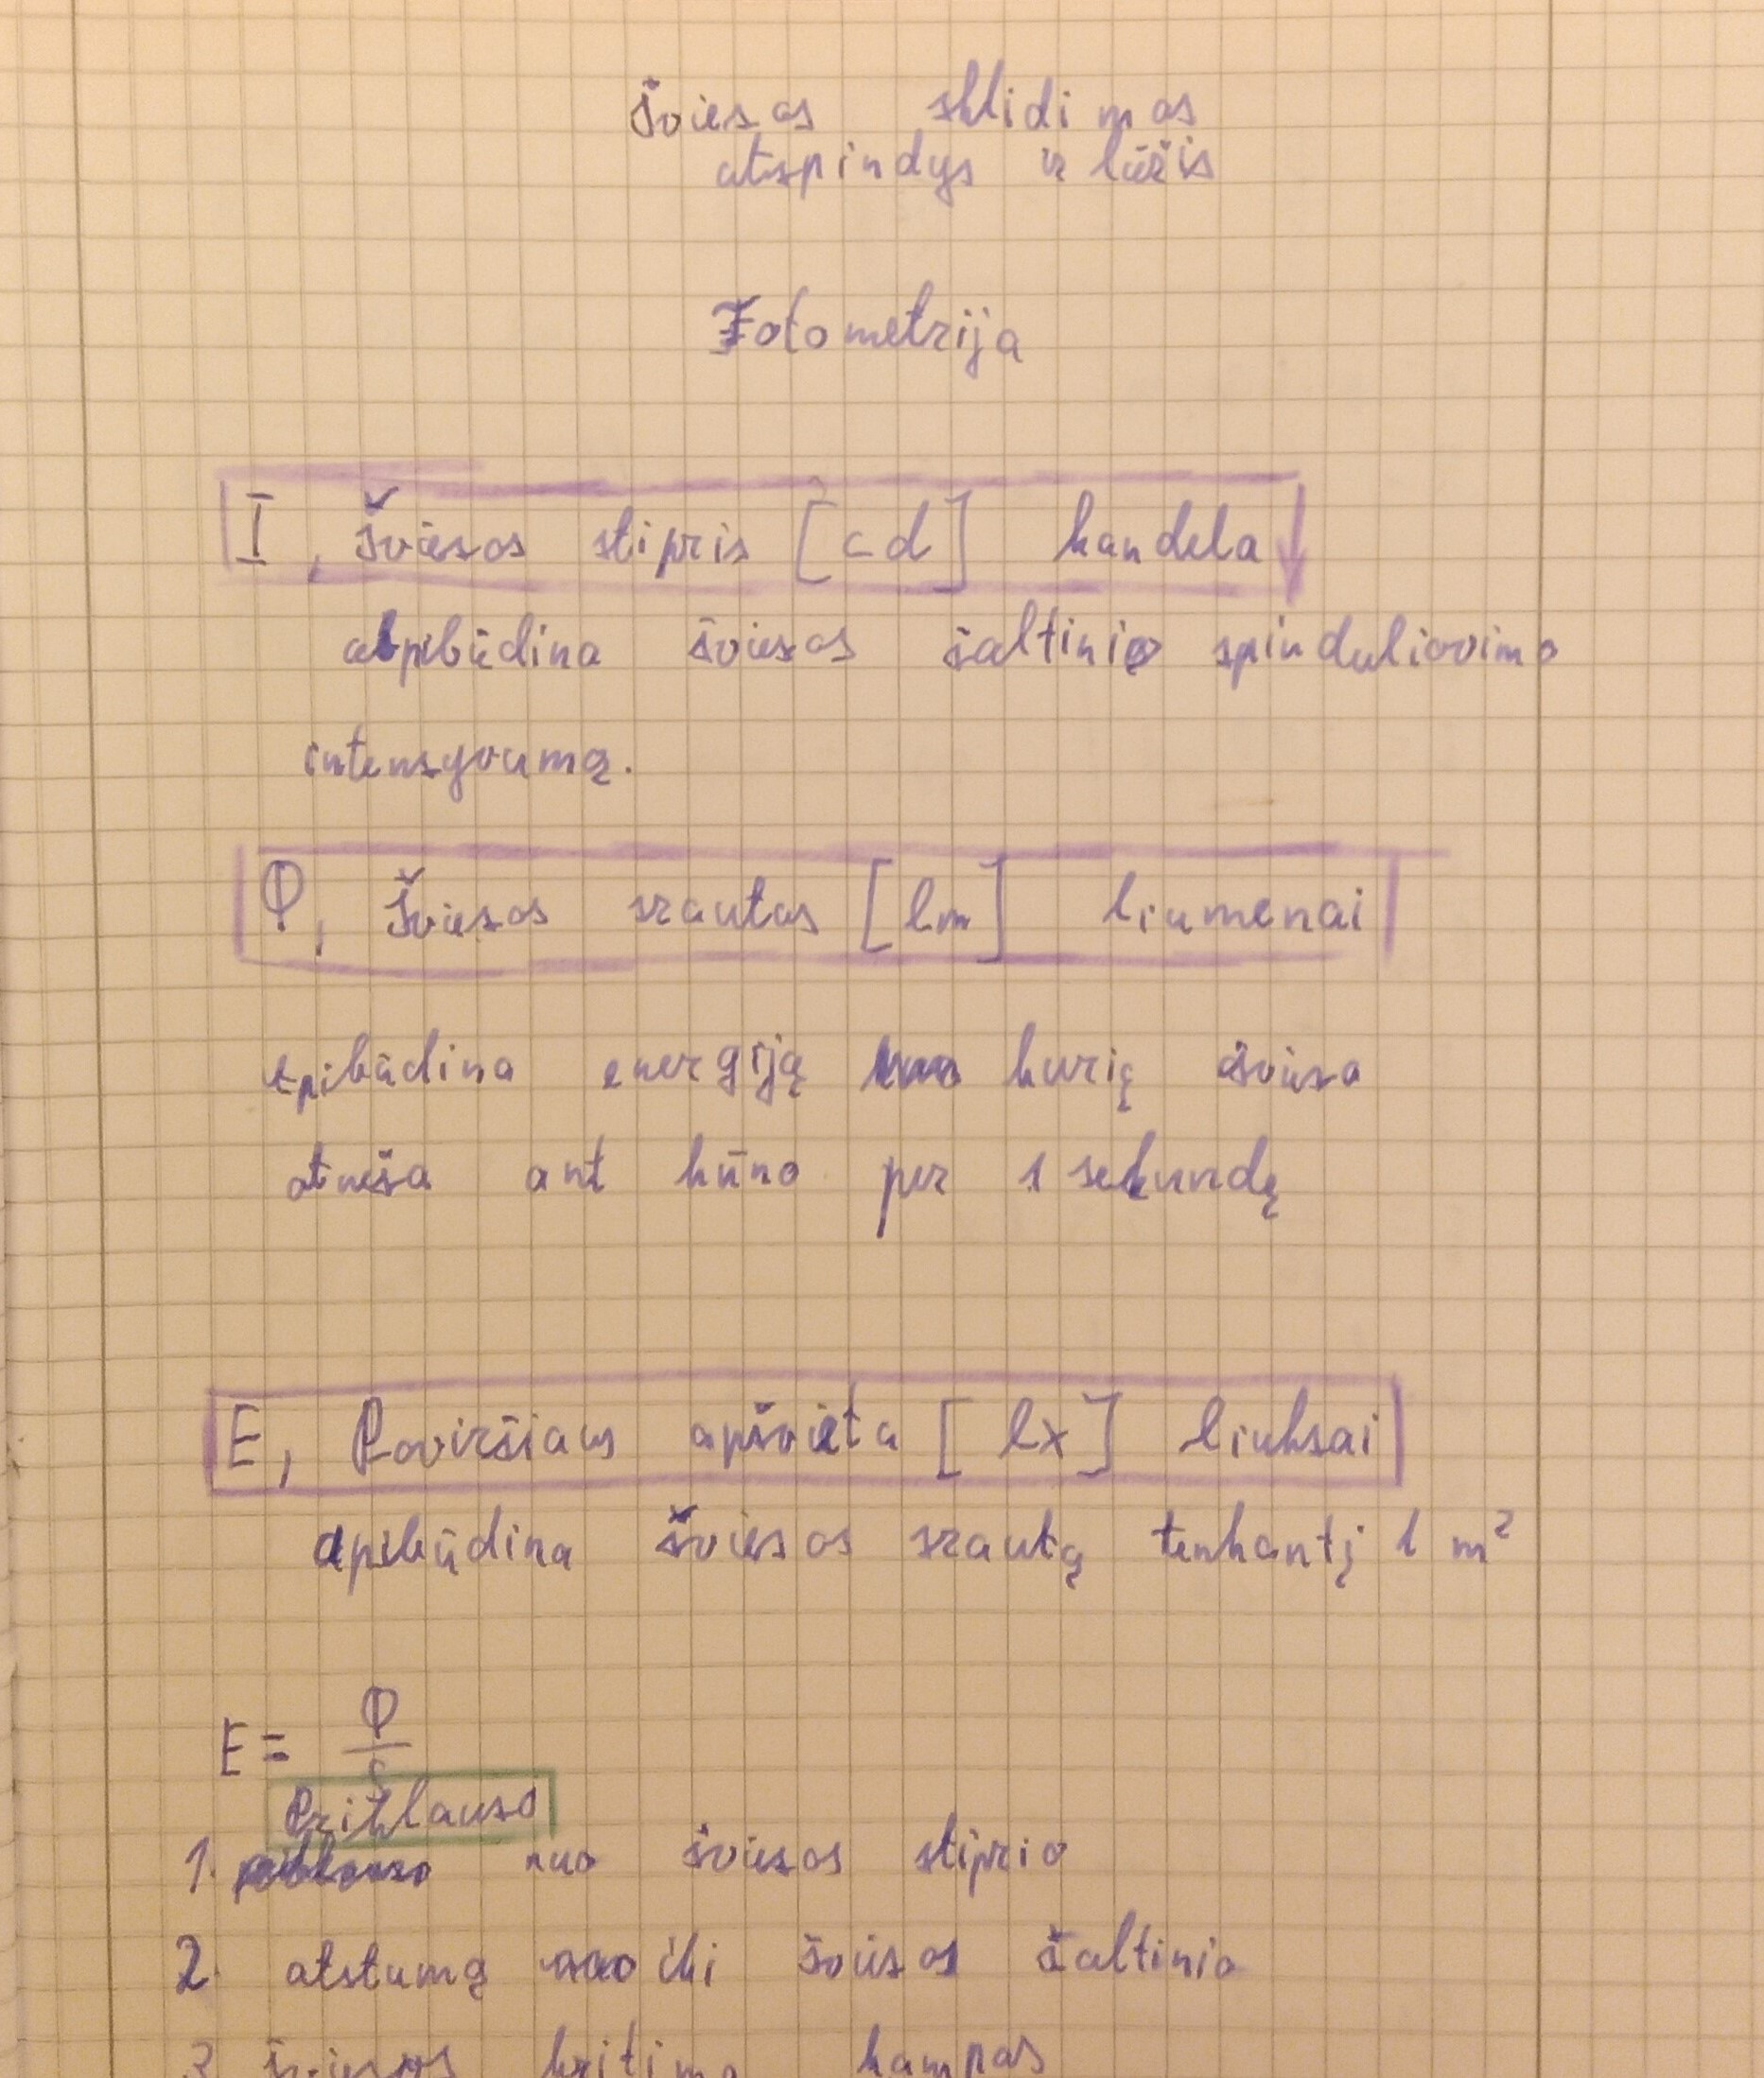 šviesos sklidimas
atspindys ir lūžis
Fotometrija
I, šviesos stipris [cd] kandela
apibūdina šviesos šaltinio spinduliavimo
intensyvumą.
Φ, šviesos srautas [lm] liumenai
apibūdina energiją kurią šviesa
atneša ant kūno per 1 sekundę
E, Paviršiaus apšvieta [lx] liuksai
apibūdina šviesos srautą tenkantį 1 m²
E = Φ/S
Priklauso
1. nuo šviesos stiprio
2. atstumą iki šviesos šaltinio
3 šviesos kritimo kampas